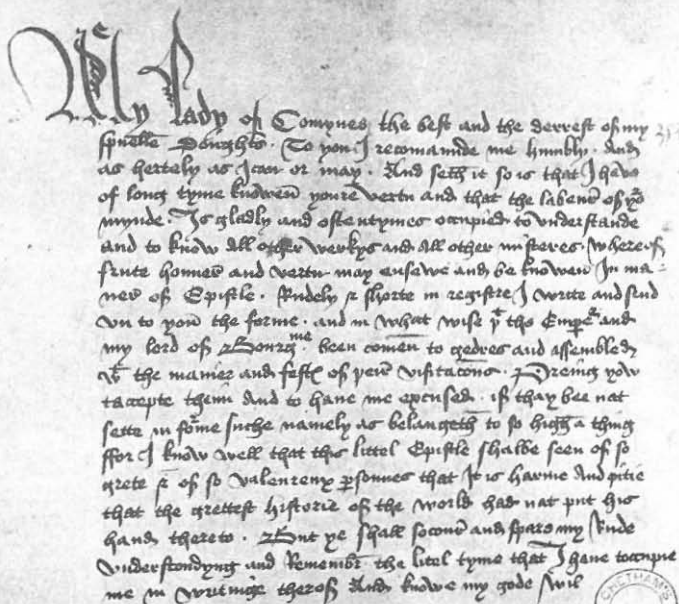 My lady of Comynes the best and the derrest of my
spuelle Doughts. To you I recomaunde me humbly. And
as hertely as I can or may. And seth it so is that I have
of long tyme knowen youre vertu and that the labeur of yor
mynde. Is gladly and oftentymes occupied to understande
and to know all other werkys and all other misteres. wherof
frute honneur and vertu may ensewe and be knowen In ma-
nere of Epistle. Rudely & shorte in registre I write and send
vn to you the forme. and in what wise yt the Emperr and
my lord of Bourgme been comen to gedres and assembled,
wt the maner and festes of þeir visitacons. Preing yow
taccepte theim And to haue me excused. if thay bee nat
sette in forme suche namely as belangeth to so high a thing
ffor I know well that this littel Epistle shalbe seen of so
grete & of so valeureux personnes that It is harme And pitie
that the grettest historie of the world had nat put his
hand thereto. But ye shall socour and spare my Rude
vnderstondyng and Remembr the litel tyme that I haue toccupie
me in writinge therof And knowe my gode wil
CHETHAM'S